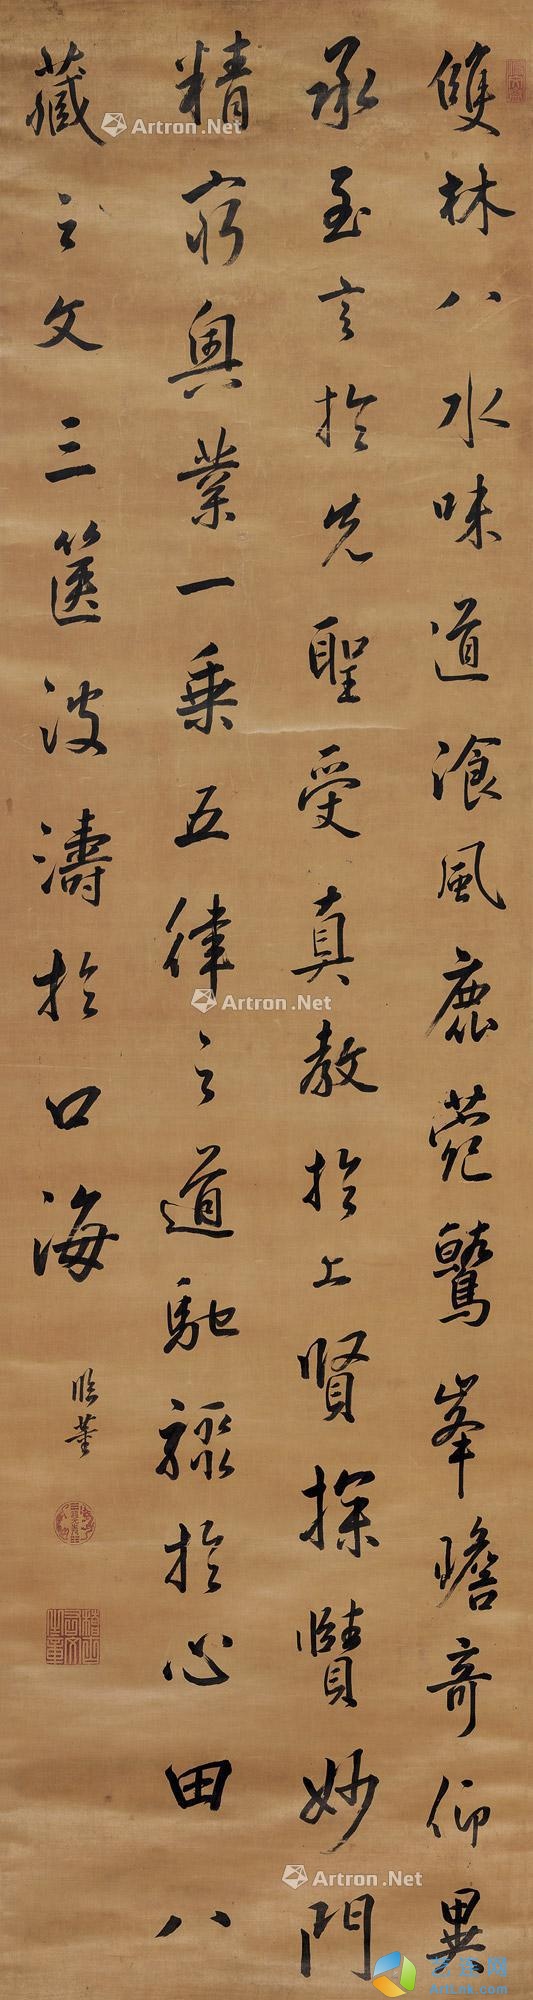 雙林八水味道湌風鹿菀鷲峯瞻奇仰異
承至言於先聖受真教於上賢探賾妙門
精窮奧業一乗五律之道馳驟於心田八
藏之文三篋波濤於口海
臨董
Artron.Net
Artron.Net
Artron.Net
Artron.Net
Artok.Com